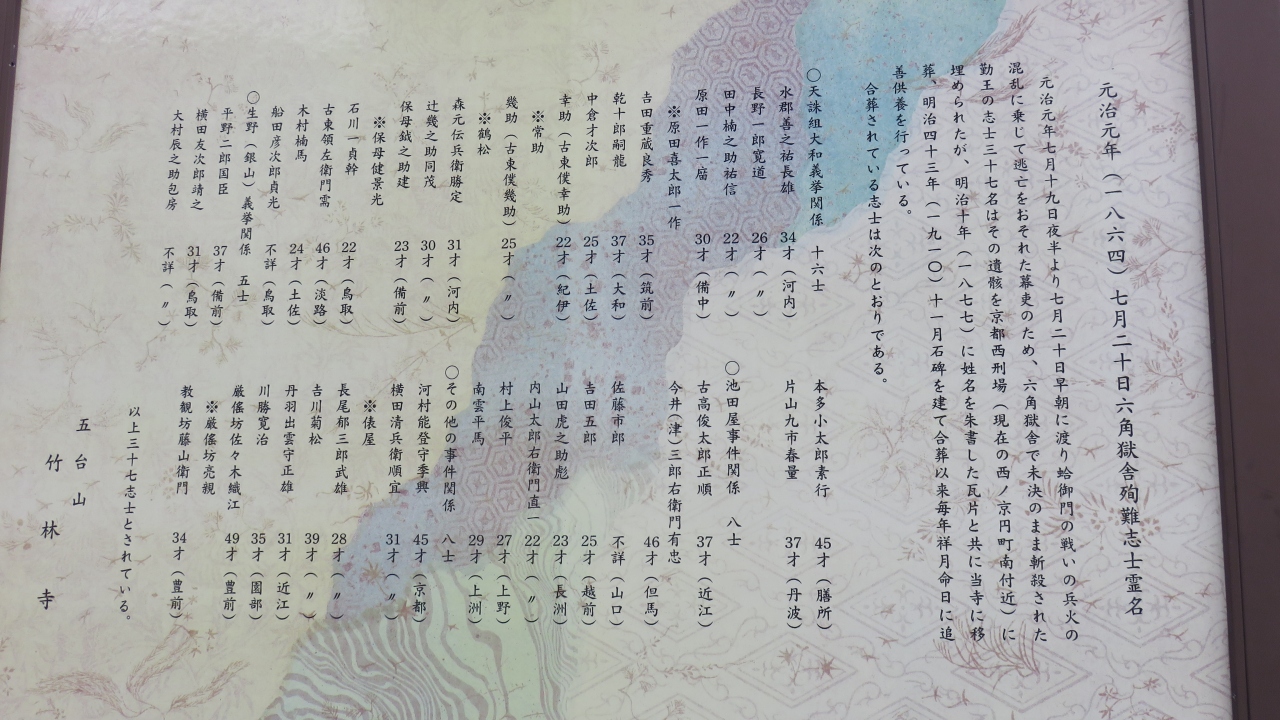 元治元年（一八六四）七月二十日六角獄舎殉難志士霊名
元治元年七月十九日夜半より七月二十日早朝に渡り蛤御門の戦いの兵火の
混乱に乗じて逃亡をおそれた幕吏のため、六角獄舎で未決のまま斬殺された
勤王の志士三十七名はその遺骸を京都西刑場（現在の西ノ京円町南付近）に
埋められたが、明治十年（一八七七）に姓名を朱書した瓦片と共に当寺に移
葬、明治四十三年（一九一〇）十一月石碑を建て合葬以来毎年祥月命日に追
善供養を行っている。
合葬されている志士は次のとおりである。
〇天誅組大和義挙関係 十六士
水郡善之祐長雄 34才（河内）
長野一郎寛道 26才（〃）
田中楠之助祐信 22才（〃）
原田一作一 30才（備中）
※原田喜太郎一作
吉田重蔵良秀 35才（筑前）
乾十郎嗣龍 37才（大和）
中倉才次郎 25才（土佐）
幸助（古東僕幸助） 22才（紀伊）
※常助
幾助（古東僕幾助） 25才（〃）
※鶴松
森元伝兵衛勝定 31才（河内）
辻幾之助同茂 30才（〃）
保母鉞之助建 23才（備前）
※保母健景光
石川一貞幹 22才（鳥取）
古東領左衛門 46才（淡路）
木村楠馬 24才（土佐）
船田彦次郎貞光 不詳（鳥取）
〇生野（銀山）義挙関係 五士
平野二郎国臣 37才（備前）
横田友次郎靖之 31才（鳥取）
大村辰之助包房 不詳（〃）
本多小太郎素行 45才（膳所）
片山九市春量 37才（丹波）
〇池田屋事件関係 八士
古高俊太郎正順 37才（近江）
今井（津）三郎右衛門有忠 46才（但馬）
佐藤市郎 不詳（山口）
吉田五郎 25才（越前）
山田虎之助彪 23才（長洲）
内山太郎右衛門直一 22才（〃）
村上俊平 27才（上野）
南雲平馬 29才（上洲）
〇その他の事件関係 八士
河村能登守季興 45才（京都）
横田清兵衛順宜 31才（〃）
※俵屋
長尾郁三郎武雄 28才（〃）
吉川菊松 39才（〃）
丹羽出雲守正雄 31才（近江）
川勝寛治 35才（園部）
厳僊坊佐々木織江 49才（豊前）
※厳僊坊亮親
教観坊藤山衛門 34才（豊前）
以上三十七志士とされている。
五台山
竹林寺